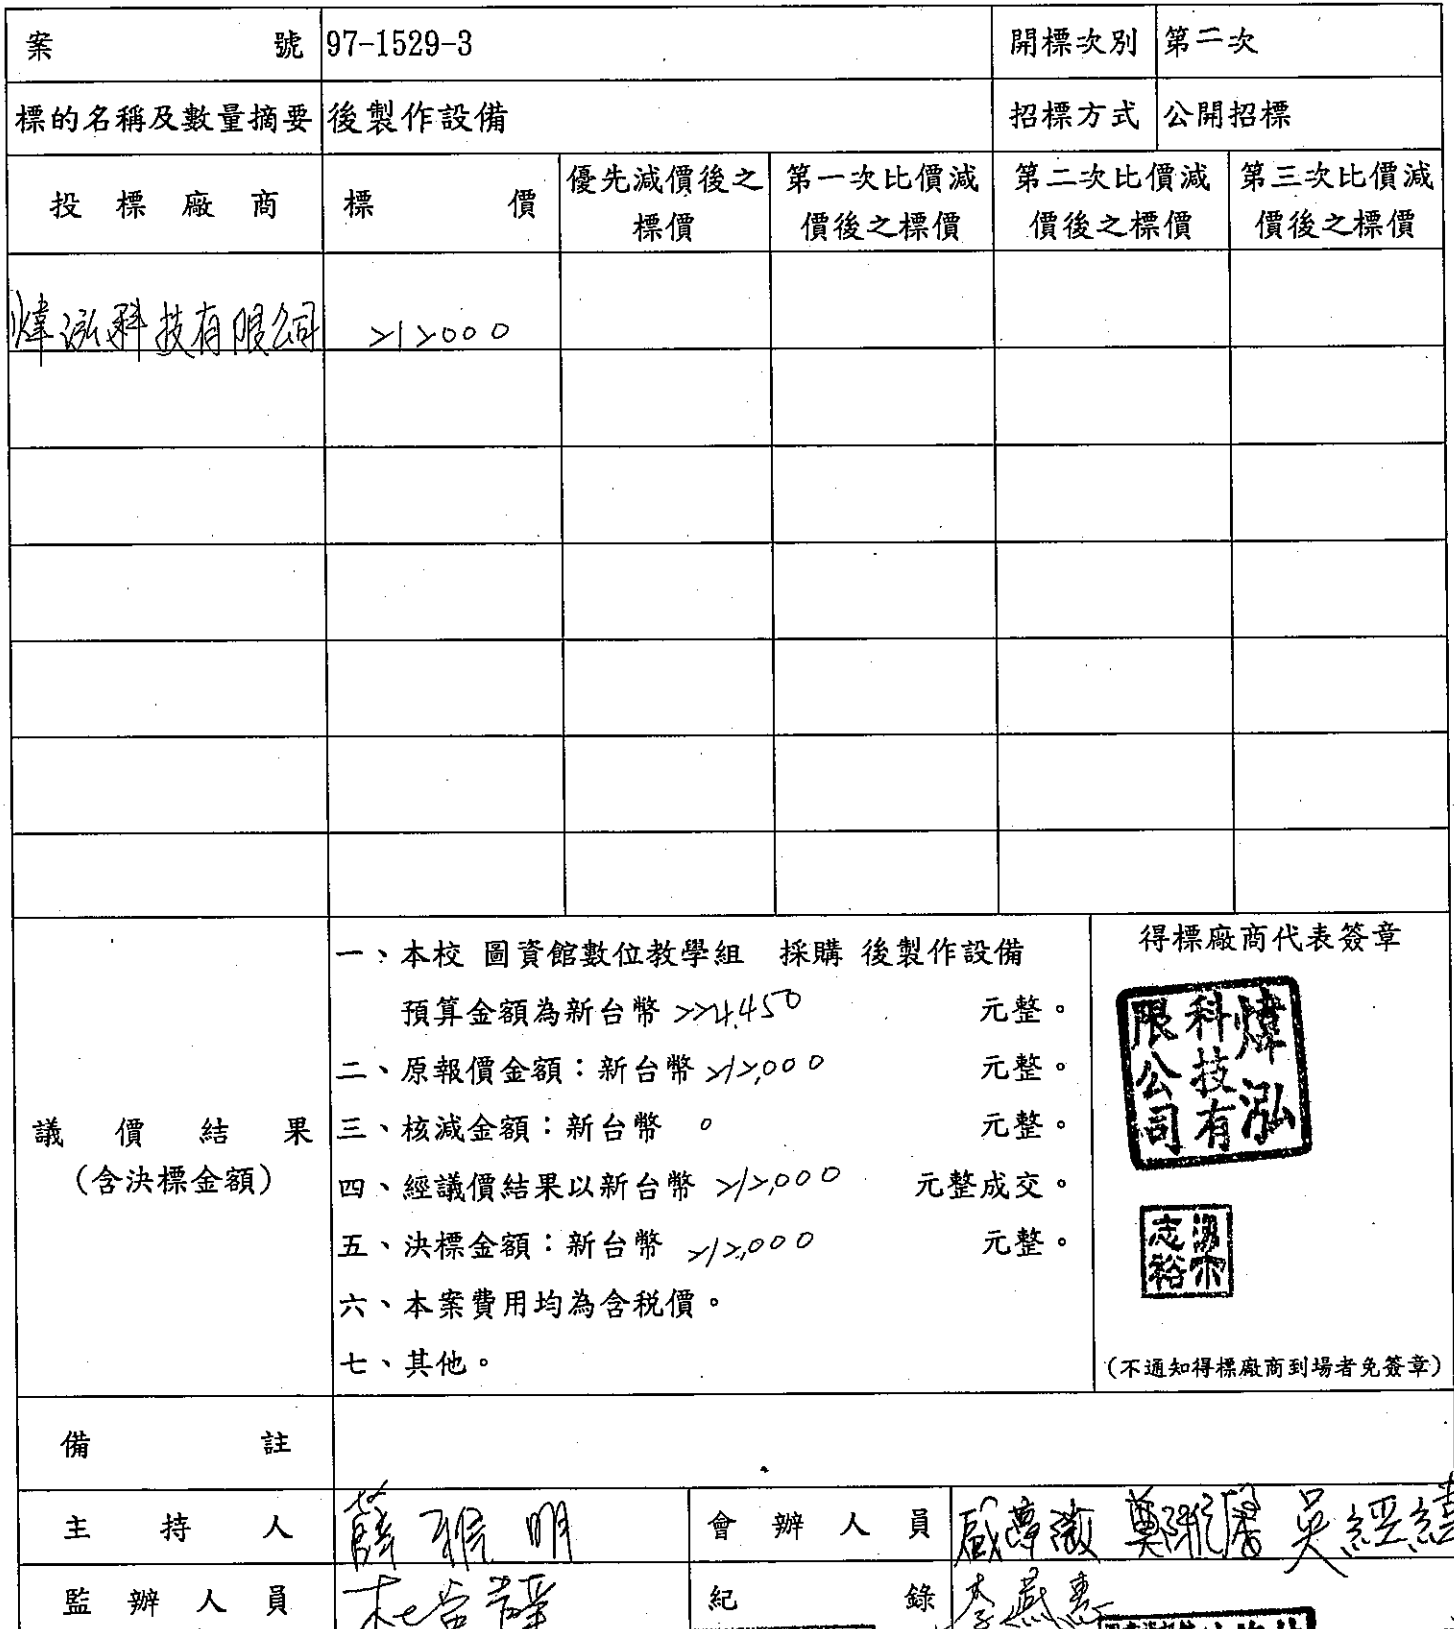 案號 97-1529-3 開標次別 第二次
標的名稱及數量摘要 後製作設備 招標方式 公開招標
投標廠商 標價 優先減價後之標價 第一次比價減價後之標價 第二次比價減價後之標價 第三次比價減價後之標價
煒泓科技有限公司 212000
議價結果
(含決標金額)
一、本校 圖資館數位教學組 採購 後製作設備
預算金額為新台幣 224,450 元整。
二、原報價金額：新台幣 212,000 元整。
三、核減金額：新台幣 0 元整。
四、經議價結果以新台幣 212,000 元整成交。
五、決標金額：新台幣 212,000 元整。
六、本案費用均為含稅價。
七、其他。
得標廠商代表簽章
煒泓
科技有
限公司
梁
志裕
(不通知得標廠商到場者免簽章)
備註
主持人 薛雅明 會辦人員 吳經緯
監辦人員 紀錄 李燕惠